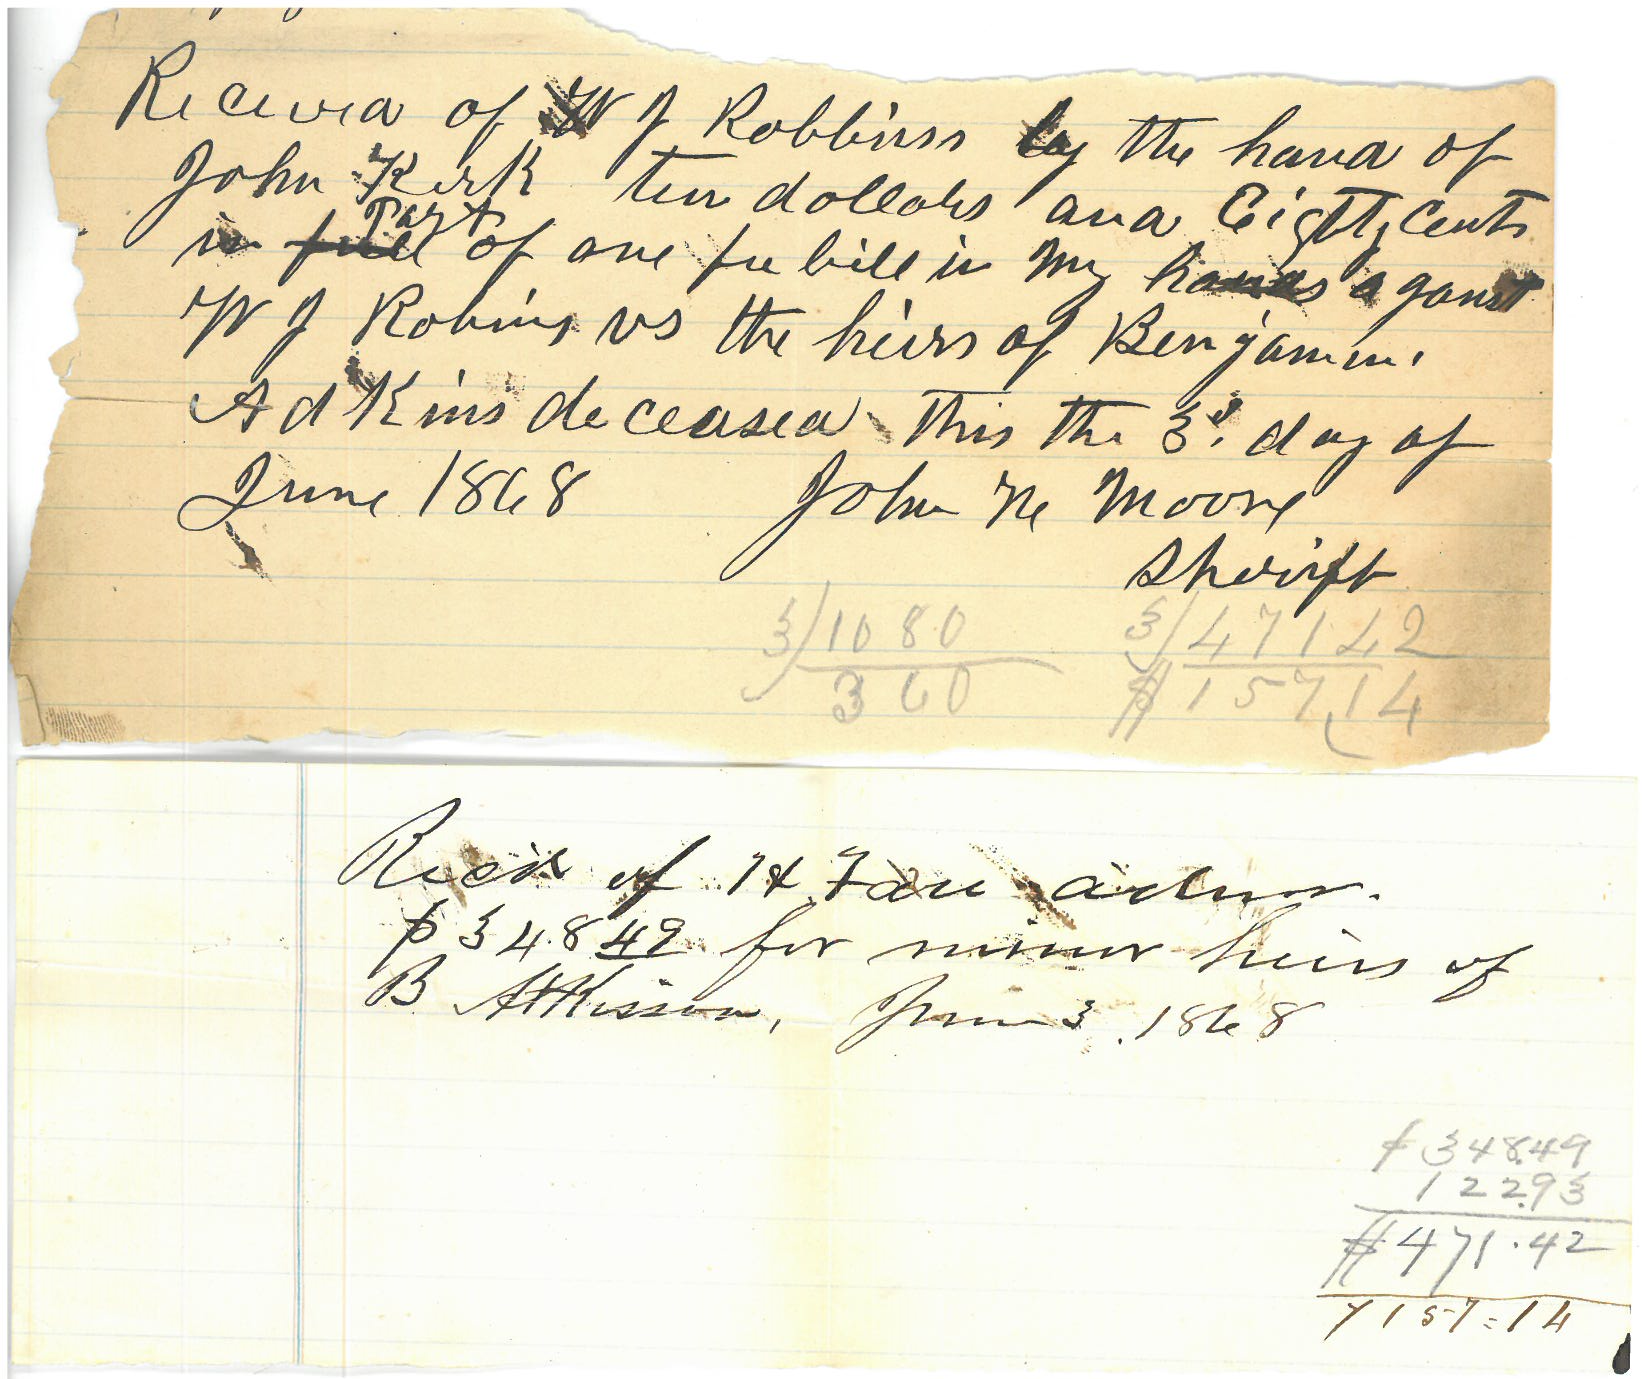 Received of W J Robbins by the hand of
John Kirk ten dollars and Eighty Cents
Part
in full of one fee bill in My hands aganst
W J Robins vs the heirs of Benjamin
Adkins deceased this the 3d day of
June 1868 John Mc Moore
Sheriff
3/1080 3/471 42
360 $157,14
Recd of admr.
$348 49 for minor heirs of
B Atkisson, June 3, 1868
$348.49
122.93
$471.42
157=14